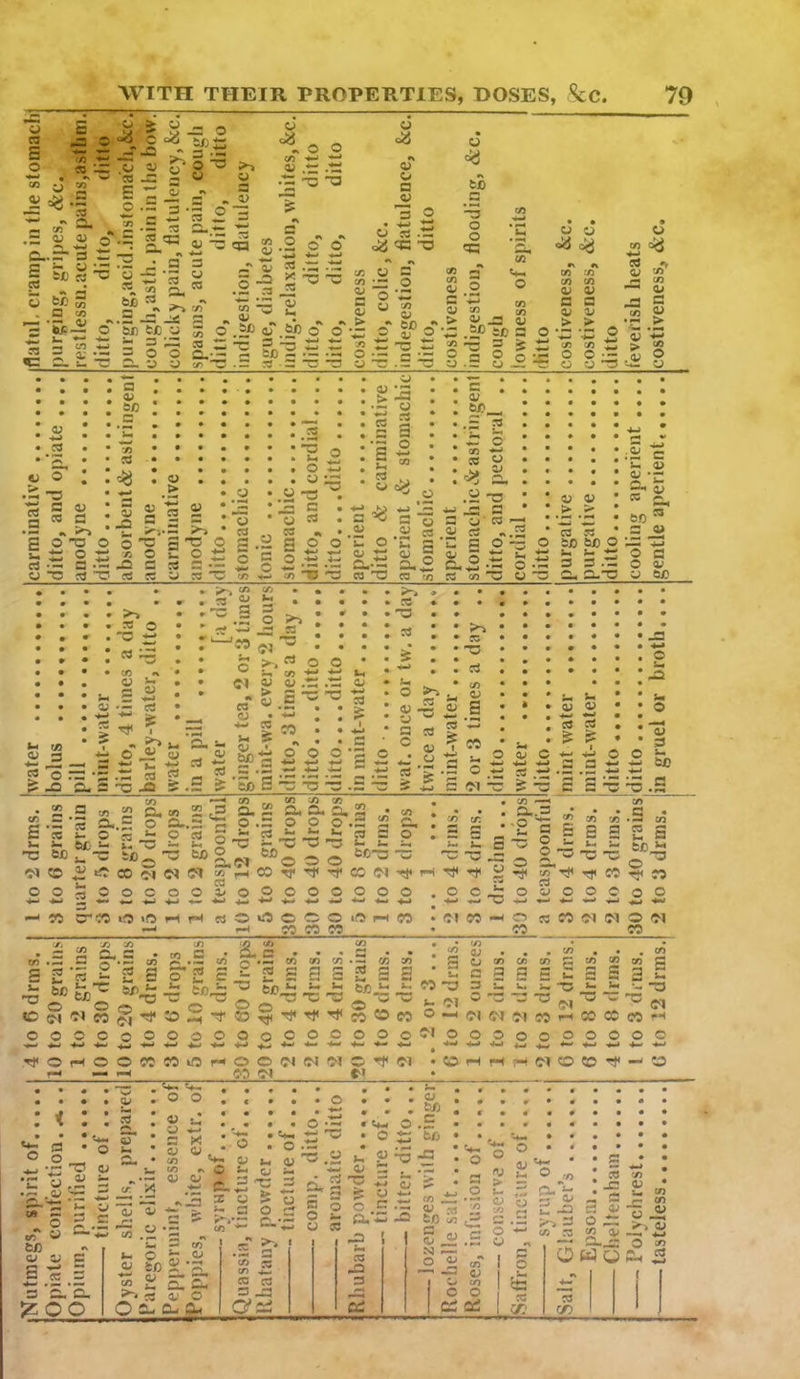 WITH THEIR PROPERTIES, DOSES, &c. 79
Nutmegs, spirit of...... 4 to 6 drms. 1 to 2 drms. water .......... carminative ........ flatul. cramp in the stomach
Opiate confection..... 10 to 20 grains 3 to 6 grains bolus .......... ditto, and opiate .... purging, gripes, &c.
Opium, purified ...... 1 to 2 grains quarter grain pill .......... anodyne .......... restlessn. acute pains, asthm.
—— tincture of .... 10 to 30 drops 3 to 5 drops mint-water ...... ditto .......... ditto, ditto, ditto
Oyster shells, prepared 10 to 20 grains 5 to 8 grains ditto, 4 times a day absorbent & astringent purging, acid. in stomach, &c.
Paregoric elixir ...... 3 to 4 drms. 15 to 20 drops barley-water, ditto .. anodyne .......... cough, asth. pain in the bow.
Peppermint, essence of 3 to 6 drops 1 to 2 drops water .......... carminative ........ colicky pain, flatulency, &c.
Poppies, white, extr. of 5 to 10 grains 1 to 2 grains in a pill ........ anodyne .......... spasms, acute pain, cough
—— syrup of ...... 1 to 4 drms. a teaspoonful water [a day ditto .......... ditto, ditto, ditto
Quassia, tincture of.... 30 to 60 drops 10 to 12 drops ginger tea, 2 or 3 times stomachic .......... indigestion, flatulency
Rhatany powder ...... 20 to 40 grains 5 to 8 grains mint-wa. every 2 hours tonic .......... ague, diabetes
—— tincture of .... 2 to 4 drms. 30 to 40 drops ditto, 3 times a day .. stomachic .......... indig. relaxation, whites, &c.
—— comp. ditto .... 2 to 4 drms. 30 to 40 drops ditto.... ditto ...... ditto, and cordial.... ditto, ditto, ditto
—— aromatic ditto 2 to 4 drms. 30 to 40 drops ditto.... ditto ...... ditto, .. ditto ...... ditto, ditto, ditto
Rhubarb powder ...... 20 to 30 grains 5 to 8 grains in mint-water...... aperient .......... costiveness
—— tincture of .... 4 to 6 drms. 1 to 2 drms. ditto .......... ditto & carminative ditto, colic, &c.
—— bitter ditto.... 2 to 3 drms. 3 to 4 drops wat. once or tw. a day aperient & stomachic indegestion, flatulence, &c.
—— lozenges with ginger 2 or 3 .... 1 .... twice a day ...... stomachic .......... ditto, ditto
Rochelle salt.......... 6 to 12 drms. 2 to 4 drms. mint-water ........ aperient .......... costiveness
Roses, infusion of .... 1 to 2 ounces 3 to 4 drms. 2 or 3 times a day .. stomachic & astringent indigestion, flooding, &c.
—— conserve of .... 1 to 2 drms. 1 drachm ... ditto .......... ditto, and pectoral .. cough
Saffron, tincture of .... 1 to 2 drms. 30 to 40 drops water .......... cordial .......... lowness of spirits
—— syrup of ...... 2 to 3 drms. a teaspoonful ditto .......... ditto .......... ditto
Salt, Glauber's ........ 6 to 12 drms. 3 to 4 drms. mint water ........ purgative .......... costiveness, &c.
—— Epsom.......... 6 to 8 drms. 2 to 4 drms. mint-water ........ purgative .......... costiveness, &c.
—— Cheltenham ...... 4 to 8 drms. 2 to 3 drms. ditto .......... ditto .......... ditto
—— Polychrest........ 1 to 3 drms. 30 to 40 grains ditto .......... cooling aperient .... feverish heats
—— tasteless........ 6 to 12 drms. 2 to 3 drms. in gruel or broth.... gentle aperient...... costiveness, &c.